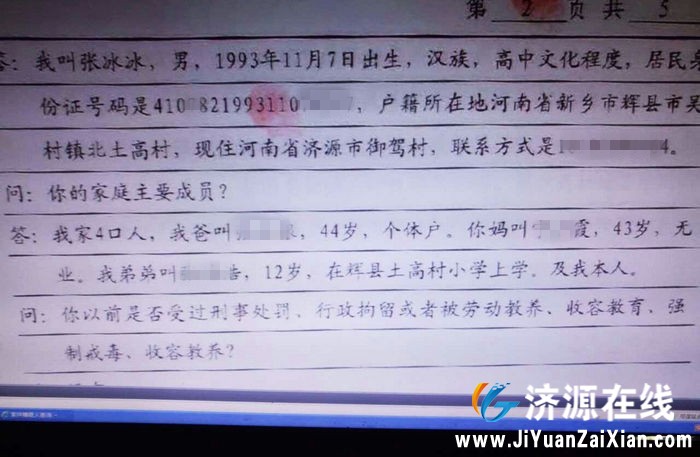 第 2 页 共 5
答：我叫张冰冰，男，1993年11月7日出生，汉族，高中文化程度，居民身
份证号码是410 821993110 ，户籍所在地河南省新乡市辉县市吴
村镇北土高村，现住河南省济源市御驾村，联系方式是1 4。
问：你的家庭主要成员？
答：我家4口人，我爸叫 ，44岁，个体户。你妈叫 霞，43岁，无
业。我弟弟叫 ，12岁，在辉县土高村小学上学。及我本人。
问：你以前是否受过刑事处罚、行政拘留或者被劳动教养、收容教育、强
制戒毒、收容教养？
济源在线
www.JiYuanZaiXian.com